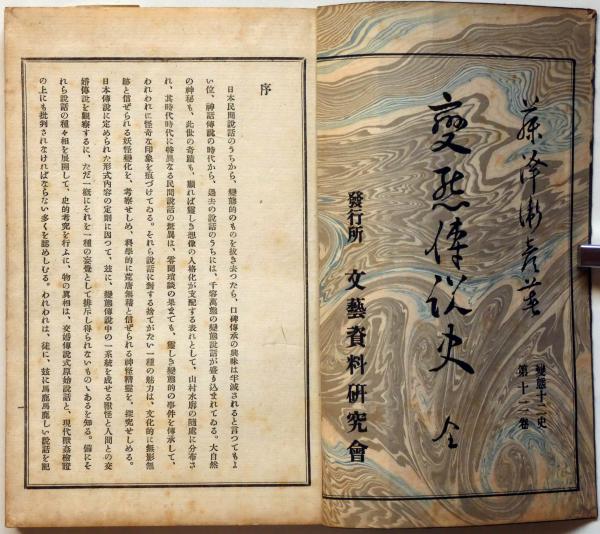 藤澤衞彦著
變態十二史
第十二卷
變態傳說史 全
發行所 文藝資料硏究會
序
日本民間說話のうちから、變態的のものを抜き去つたら、口碑傳承の興味は半減されると言つてもよ
い位、神話傳說の時代から、過去の說話のうちには、千容萬態の變態說話が盛り込まれてゐる。大自然
の神祕も、此世の奇蹟も、顯れば靈しき想像の人格化が支配する表れとして、山村水廓の隨處に分布さ
れ、其時代時代に特異なる民間說話の無異は、零聞瑣談の果までも、靈しき變態的の事件を傳承して、
われわれに怪奇な印象を痕づけてゐる。それら說話に對する捨てがたい一種の魅力は、文化的に無影無
跡と信ぜられる妖怪變化を、考察せしめ、科學的に荒唐無稽と信ぜられる神怪精靈を、探究せしめる。
日本傳說に定められた形式內容の定則に因つて、玆に、變態傳說中の一系統を成せる獸怪と人間との交
婚傳說を觀察するに、ただ一槪にそれを一種の妄覺として排斥し得られないものゝあるを知る。備にそ
れら說話の種々相を展開して、史的考究を行ふに、物の眞相は、交婚傳說式原始說話と、現代獸姦檢證
の上にも批判されなければならない多くを認めしむる。われわれは、徒に、玆に馬鹿馬鹿しい說話を記